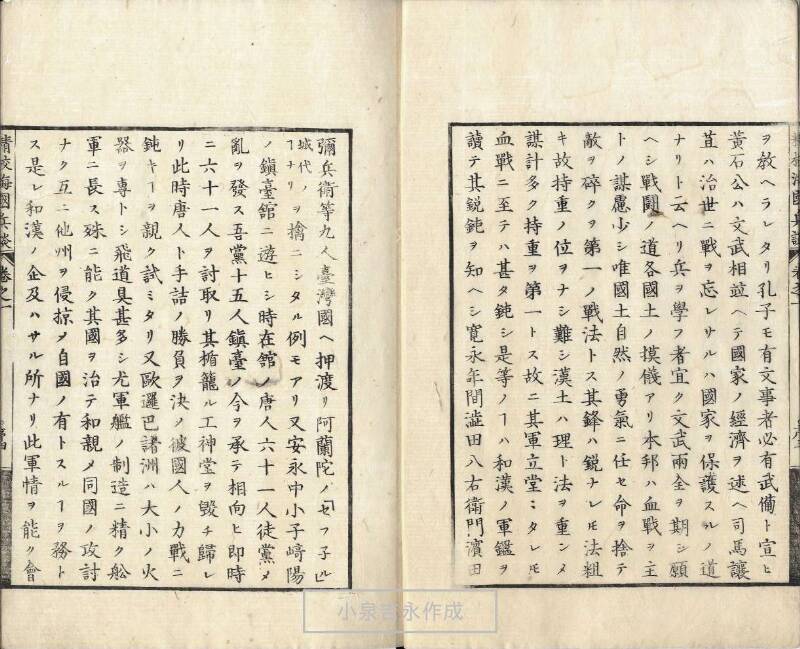 ヲ敎ヘラレタリ孔子モ有文事者必有武備ト宣ヒ
黃石公ハ文武相竝ヘテ國家ノ經濟ヲ述ヘ司馬讓
苴ハ治世ニ戰ヲ忘レサルハ國家ヲ保護スルノ道
ナリト云ヘリ兵ヲ學フ者宜ク文武兩全ヲ期シ願
ヘシ戰鬪ノ道各國土ノ摸儀アリ本邦ハ血戰ヲ主
トノ謀慮少シ唯國土自然ノ勇氣ニ任セ命ヲ捨テ
敵ヲ碎クヲ第一ノ戰法トス其鋒ハ銳ナレ𪜈法粗
キ故持重ノ位ヲナシ難シ漢土ハ理ト法ヲ重ンメ
謀計多ク持重ヲ第一トス故ニ其軍立堂ミタレ𪜈
血戰ニ至テハ甚タ鈍シ是等ノヿハ和漢ノ軍鑑ヲ
讀テ其銳鈍ヲ知ヘシ寛永年間澁田八右衛門濱田
彌兵衛等九人臺灣國ヘ押渡リ阿蘭陀ノ「ゼフ子ル」
城代ノヿナリヲ擒ニシタル例モアリ又安永中小子﨑陽
ノ鎭臺館ニ遊ヒシ時在館ノ唐人六十一人徒黨メ
亂ヲ發ス吾黨十五人鎭臺ノ令ヲ承テ相向ヒ即時
ニ六十一人ヲ討取リ其楯籠ル工神堂ヲ毀チ歸レ
リ此時唐人ト手詰ノ勝負ヲ決ノ彼國人ノ力戰ニ
鈍キヿヲ親ク試ミタリ又歐邏巴諸洲ハ大小ノ火
器ヲ專トシ飛道具甚多シ尤軍艦ノ制造ニ精ク舩
軍ニ長ス殊ニ能ク其國ヲ治テ和親メ同國ノ攻討
ナク互ニ他州ヲ侵掠ノ自國ノ有トスルヿヲ務ト
ス是レ和漢ノ企及ハサル所ナリ此軍情ヲ能ク會
精校海國兵談 卷之一
小泉吉永作成